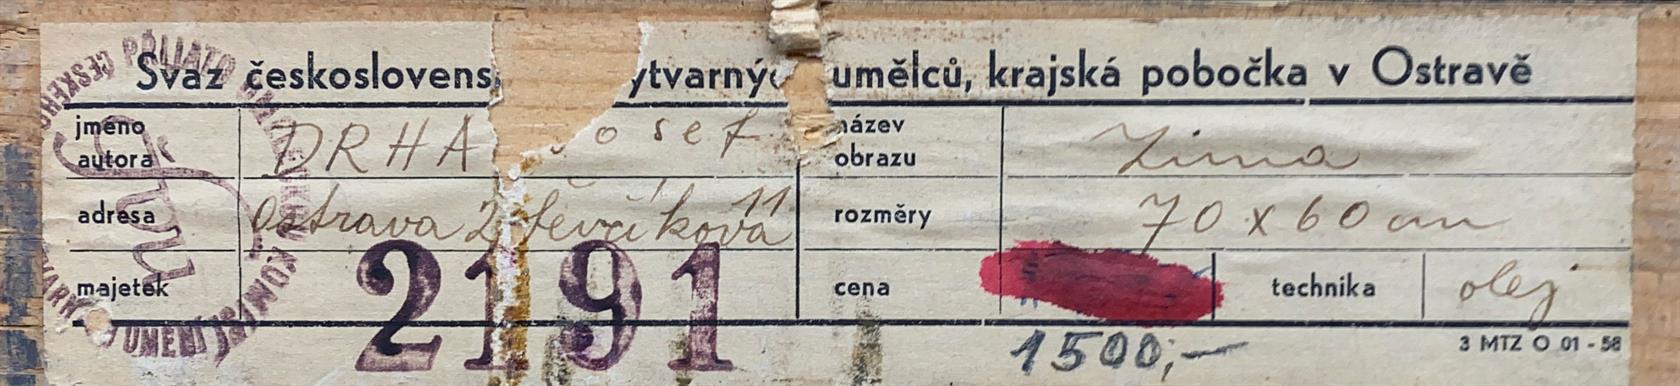 Svaz českoslovens ytvarnýc umělců, krajská pobočka v Ostravě
jméno autora DRHA osef název obrazu Zima
adresa Ostrava 2 Ševčíkova 11 rozměry 70 x 60 cm
majetek 2191 cena technika olej
1500,- 3 MTZ O 01 - 58